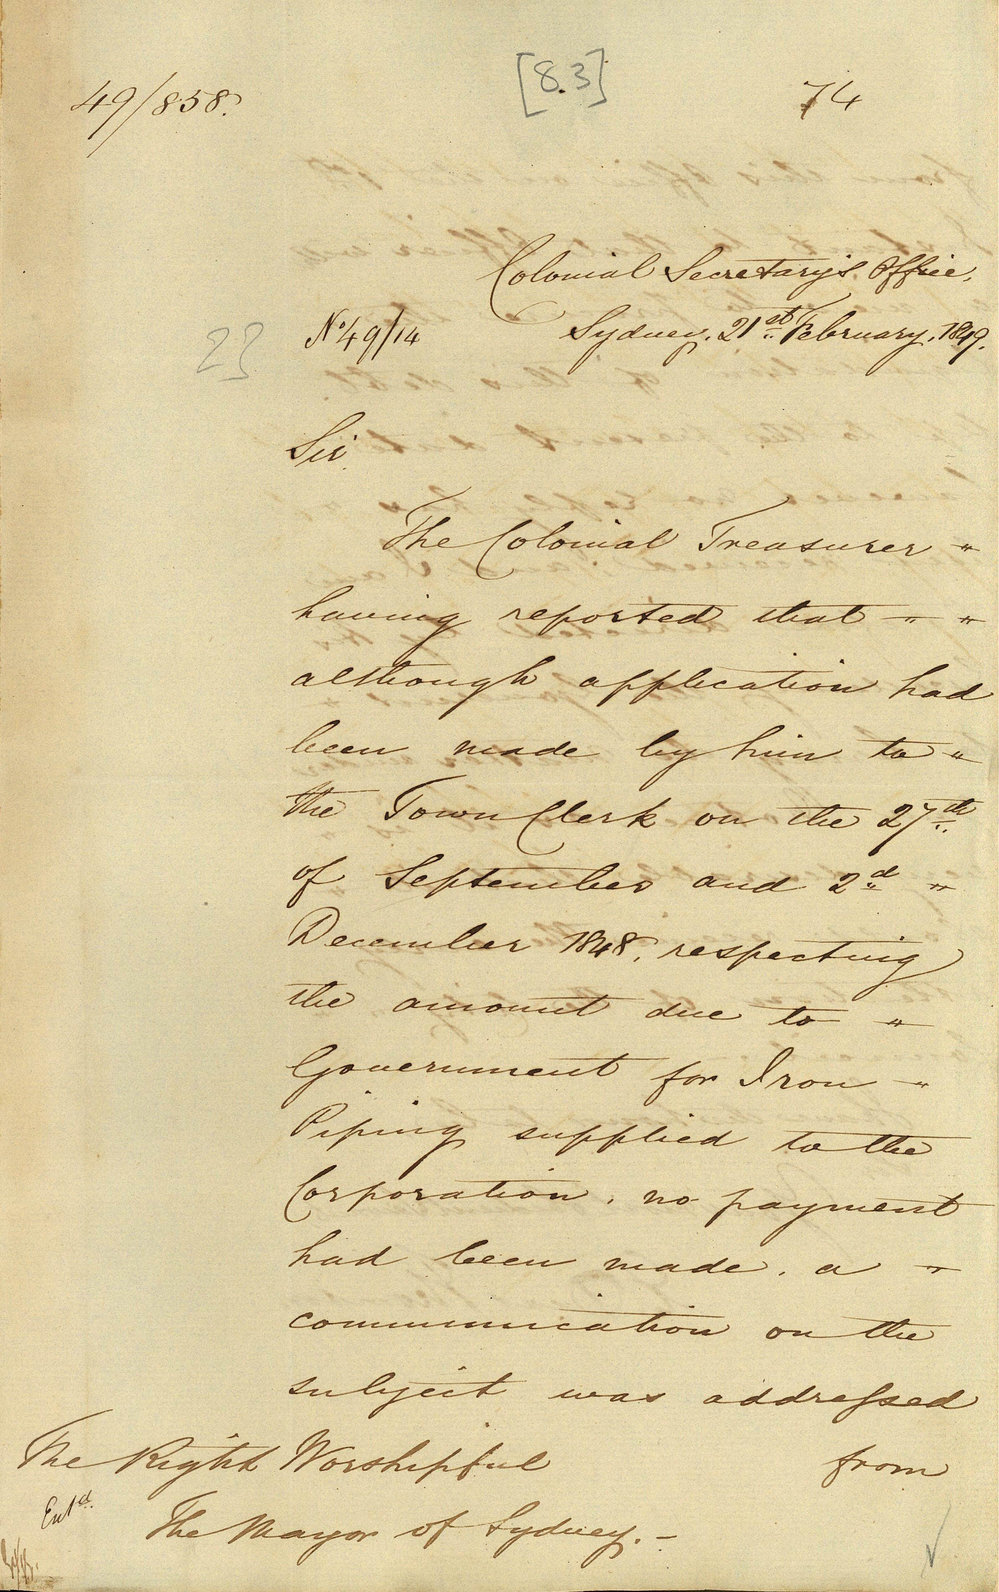 49/858.
[8.3]
74
Colonial Secretary's Office,
23
No. 49/14
Sydney, 21st February, 1849.
Sir,
The Colonial Treasurer "
having reported that " "
although application had
been made by him to "
the Town Clerk on the 27th
of September and 2d "
December 1848, respecting
the amount due to "
Government for Iron "
Piping supplied to the
Corporation, no payment
had been made, a "
communication on the
subject was addressed
from
The Right Worshipful
The Mayor of Sydney. –
Entd.